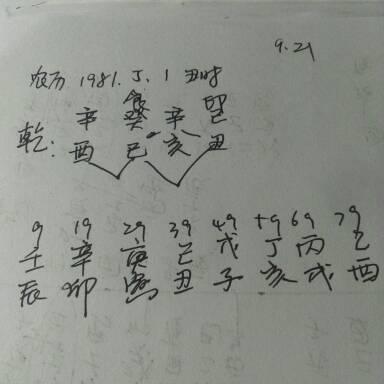 9.21
农历 1981.5.1 丑时
辛 癸 辛
乾: 酉 巳 亥 丑
9 19 29 39 49 59 69 79
壬 辛 庚 己 戊 丁 丙 乙
辰 卯 寅 丑 子 亥 戌 酉